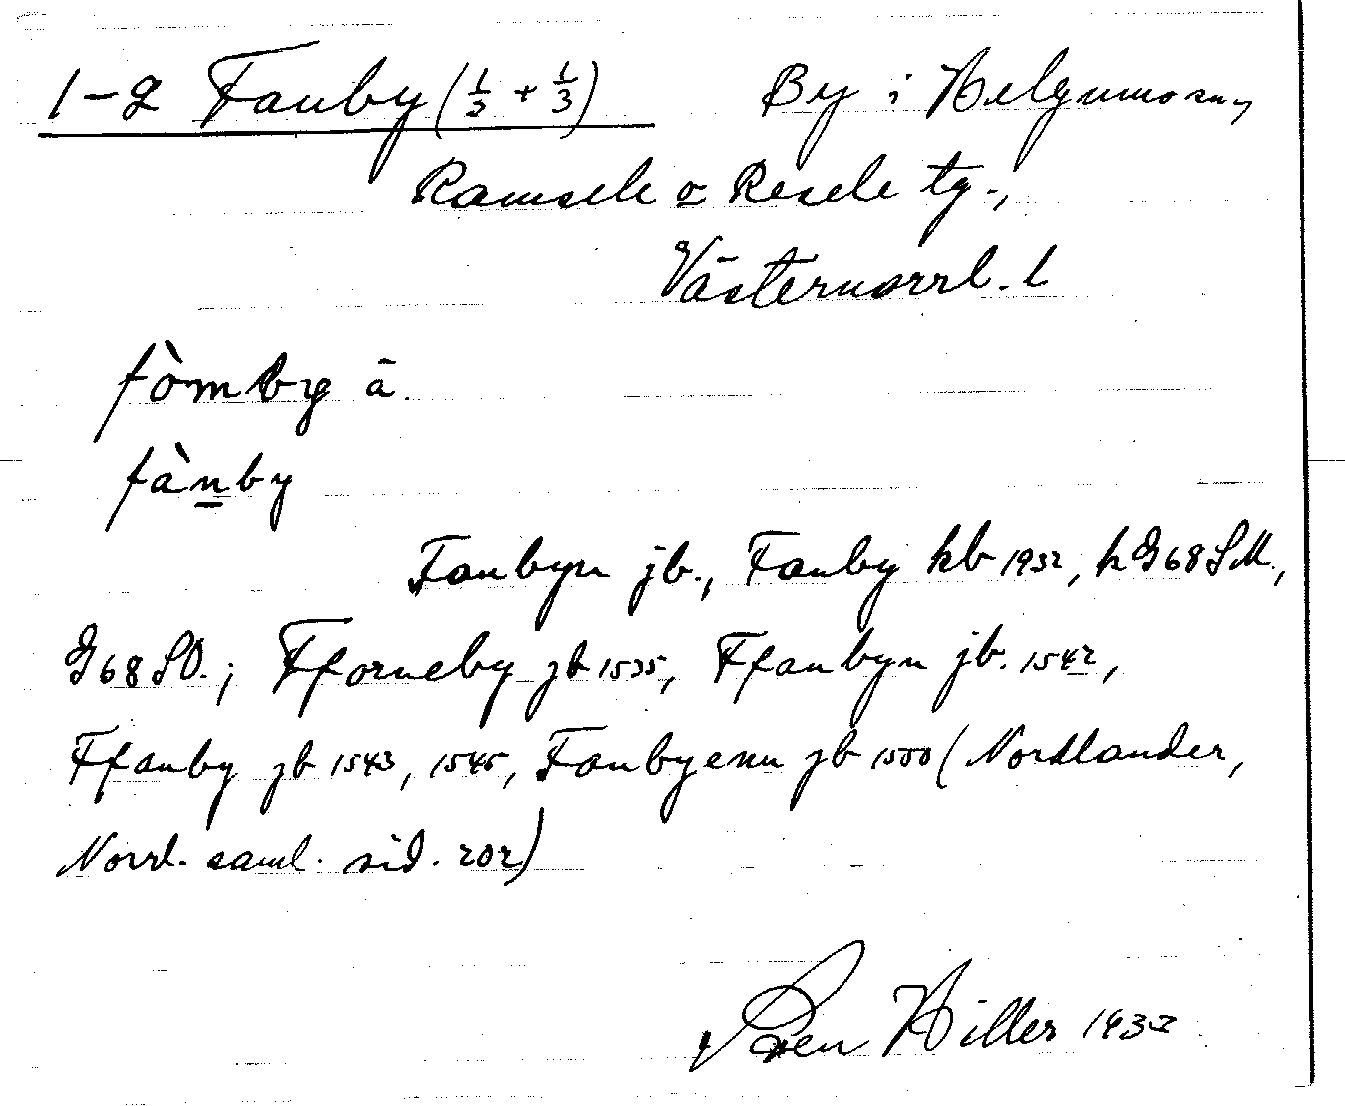 1-2 Fanby (1/2 + 1/3) By i Helgumsocn,
Ramsele o Resele tg.,
Västernorrl. l
fòmby ä.
fànby
Fanbyn jb., Fanby kb 1932, h G68SM.,
G68SO.; Fforneby jb 1535, Ffanbyn jb. 1542,
Ffanby jb 1543, 1545, Fanbyenn jb 1550 (Nordlander,
Norrl. saml. sid. 202)
Sven Hiller 1932